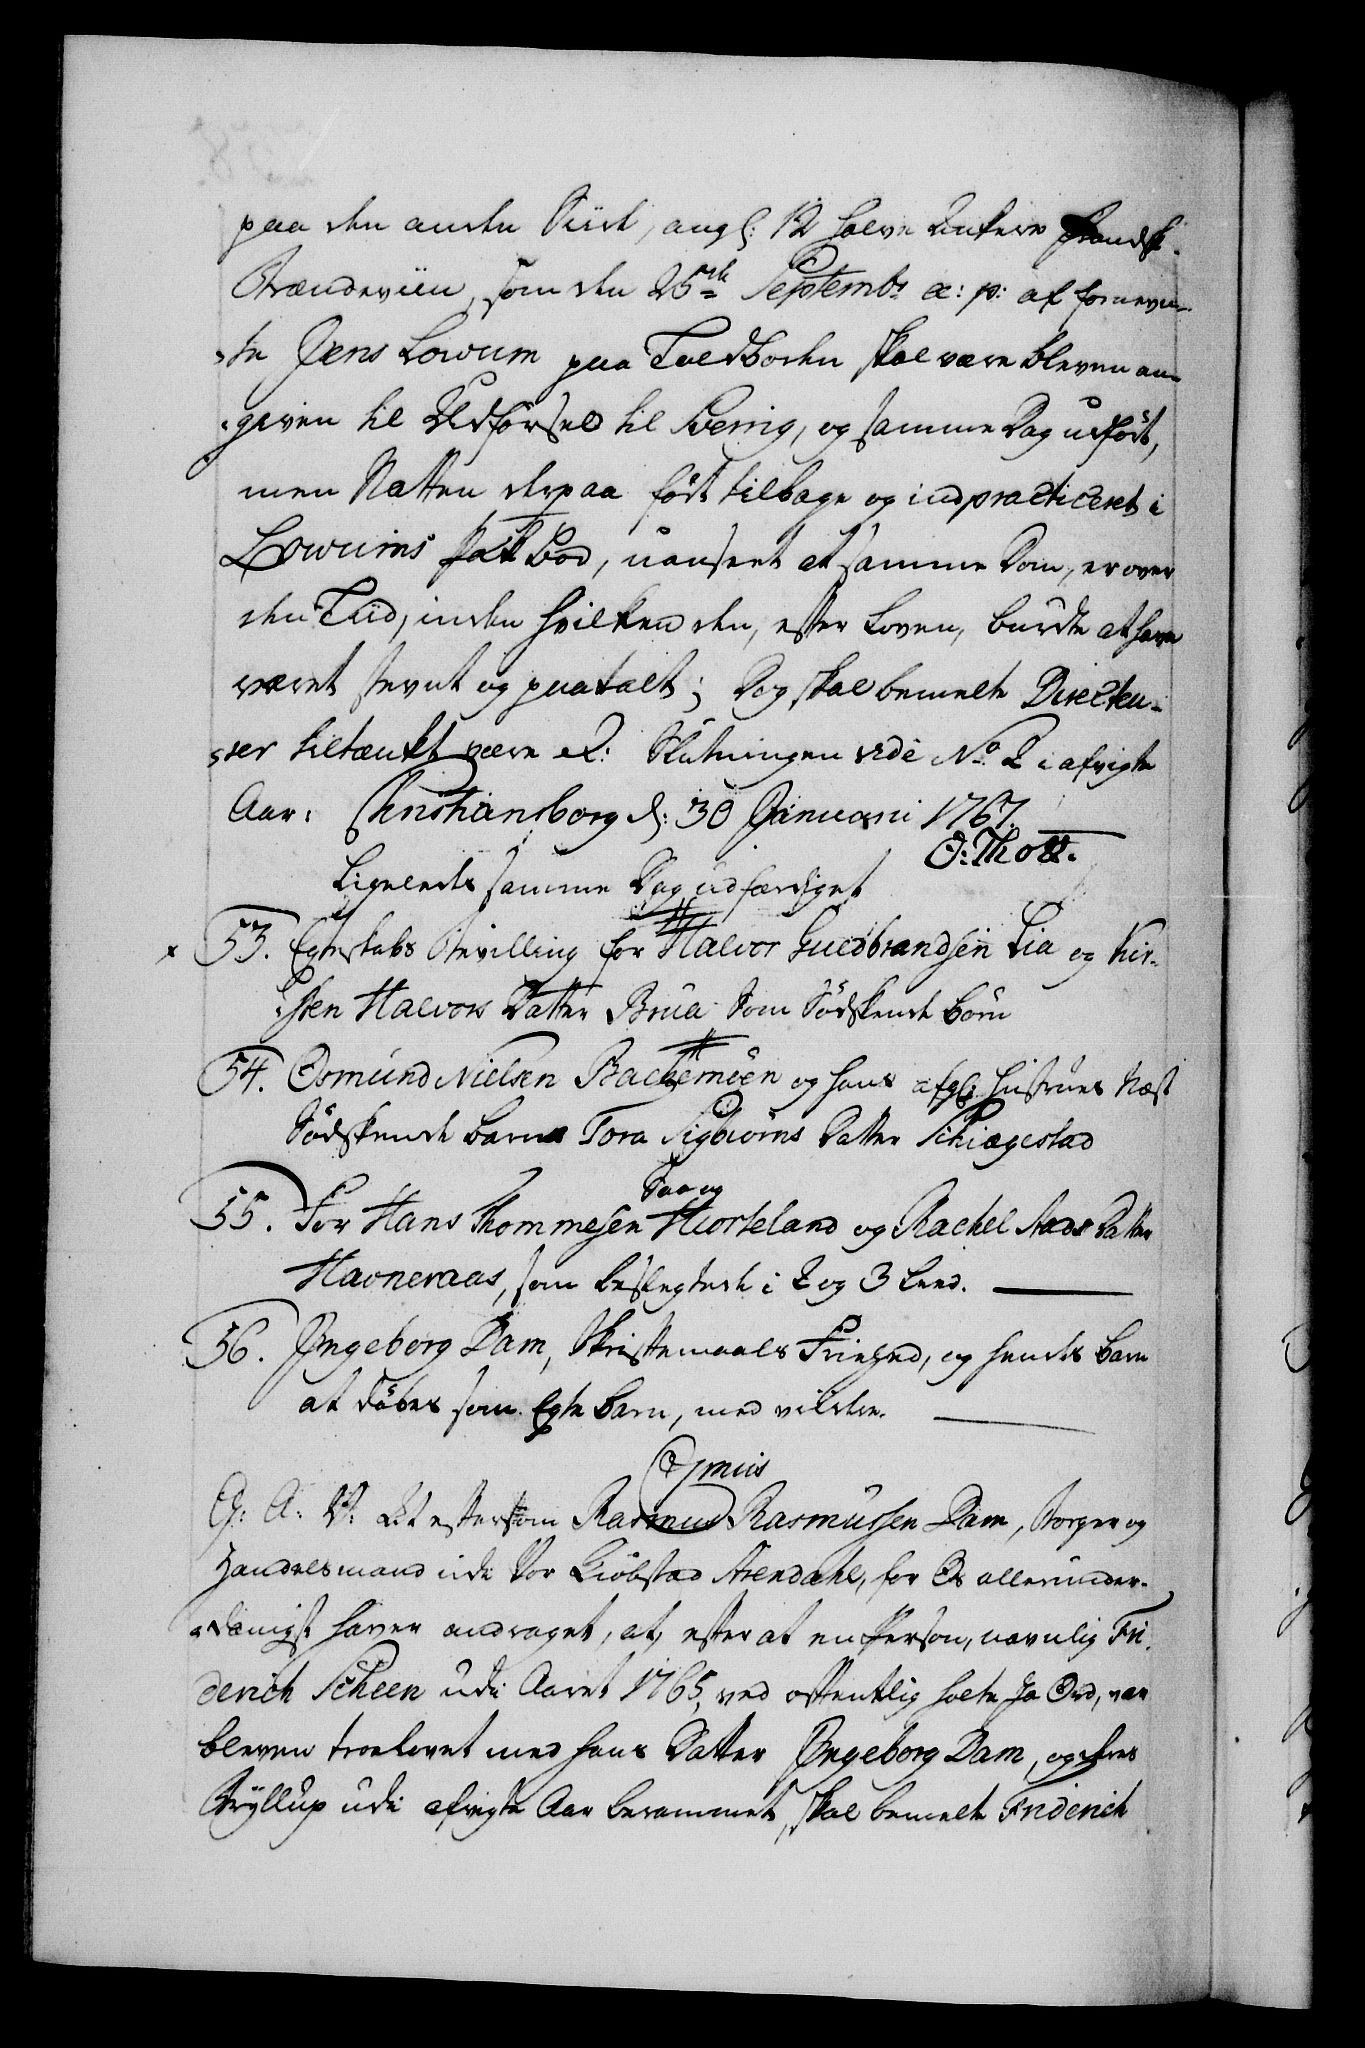 paa den anden Siide, angl: 12 halve Ankere Fransk
Brændeviin, som den 25de Septembr a: p: af fornævn-
-te Jens Lowum paa Toldboden skal være bleven an-
-given til Udförsel til Sverrig, og samme Dag udfört,
men Natten derpaa fört tilbage og indpracticeret i
Lowums Salt Bod, uanseet at samme Dom, er over
den Tiid, inden hvilken den, efter Loven, burde at have
været stevnt og paatalt; Dog skal bemelte Directeu-
-rer tiltænkt være &: Slutningen vide No 2 i afvigte
Aar: Christiansborg d: 30 Januarii 1767.
O: Thott.
Ligeledes samme Dag udfærdiget
x 53. Egteskabs Bevilling for Halvor Guldbrandsen Lia og Kir-
-sten Halvors Datter Brua som Södskende Börn
54. Osmund Nielsen Rachemoen og hans afgl: Hustrues Næst
Södskende Barn Tora Sigbiörns Datter Schiægestad
Saaog
55. For Hans Thommesen Hiorteland og Rachel Aads Datter
Havneraas, som beslegtede i 2 og 3 Leed.
56. Ingeborg Dam, Skriftemaals Friehed, og hendes Barn
at döbes som Egte Barn, med videre.
Cosmus
G: A: V: At eftersom Rasmus Rasmussen Dam, Borger og
Handelsmand udi Vor Kiöbstad Arendahl, for Os allerunder-
-danigst haver andraget, at, efter at en Person, navnlig Fri-
derich Scheen udi Aaret 1765, ved offentlig holte Ja Ord, var
bleven trolovet med hans Datter Ingeborg Dam, og deres
Bryllup udi afvigte Aar berammet, skal bemelte Friderich